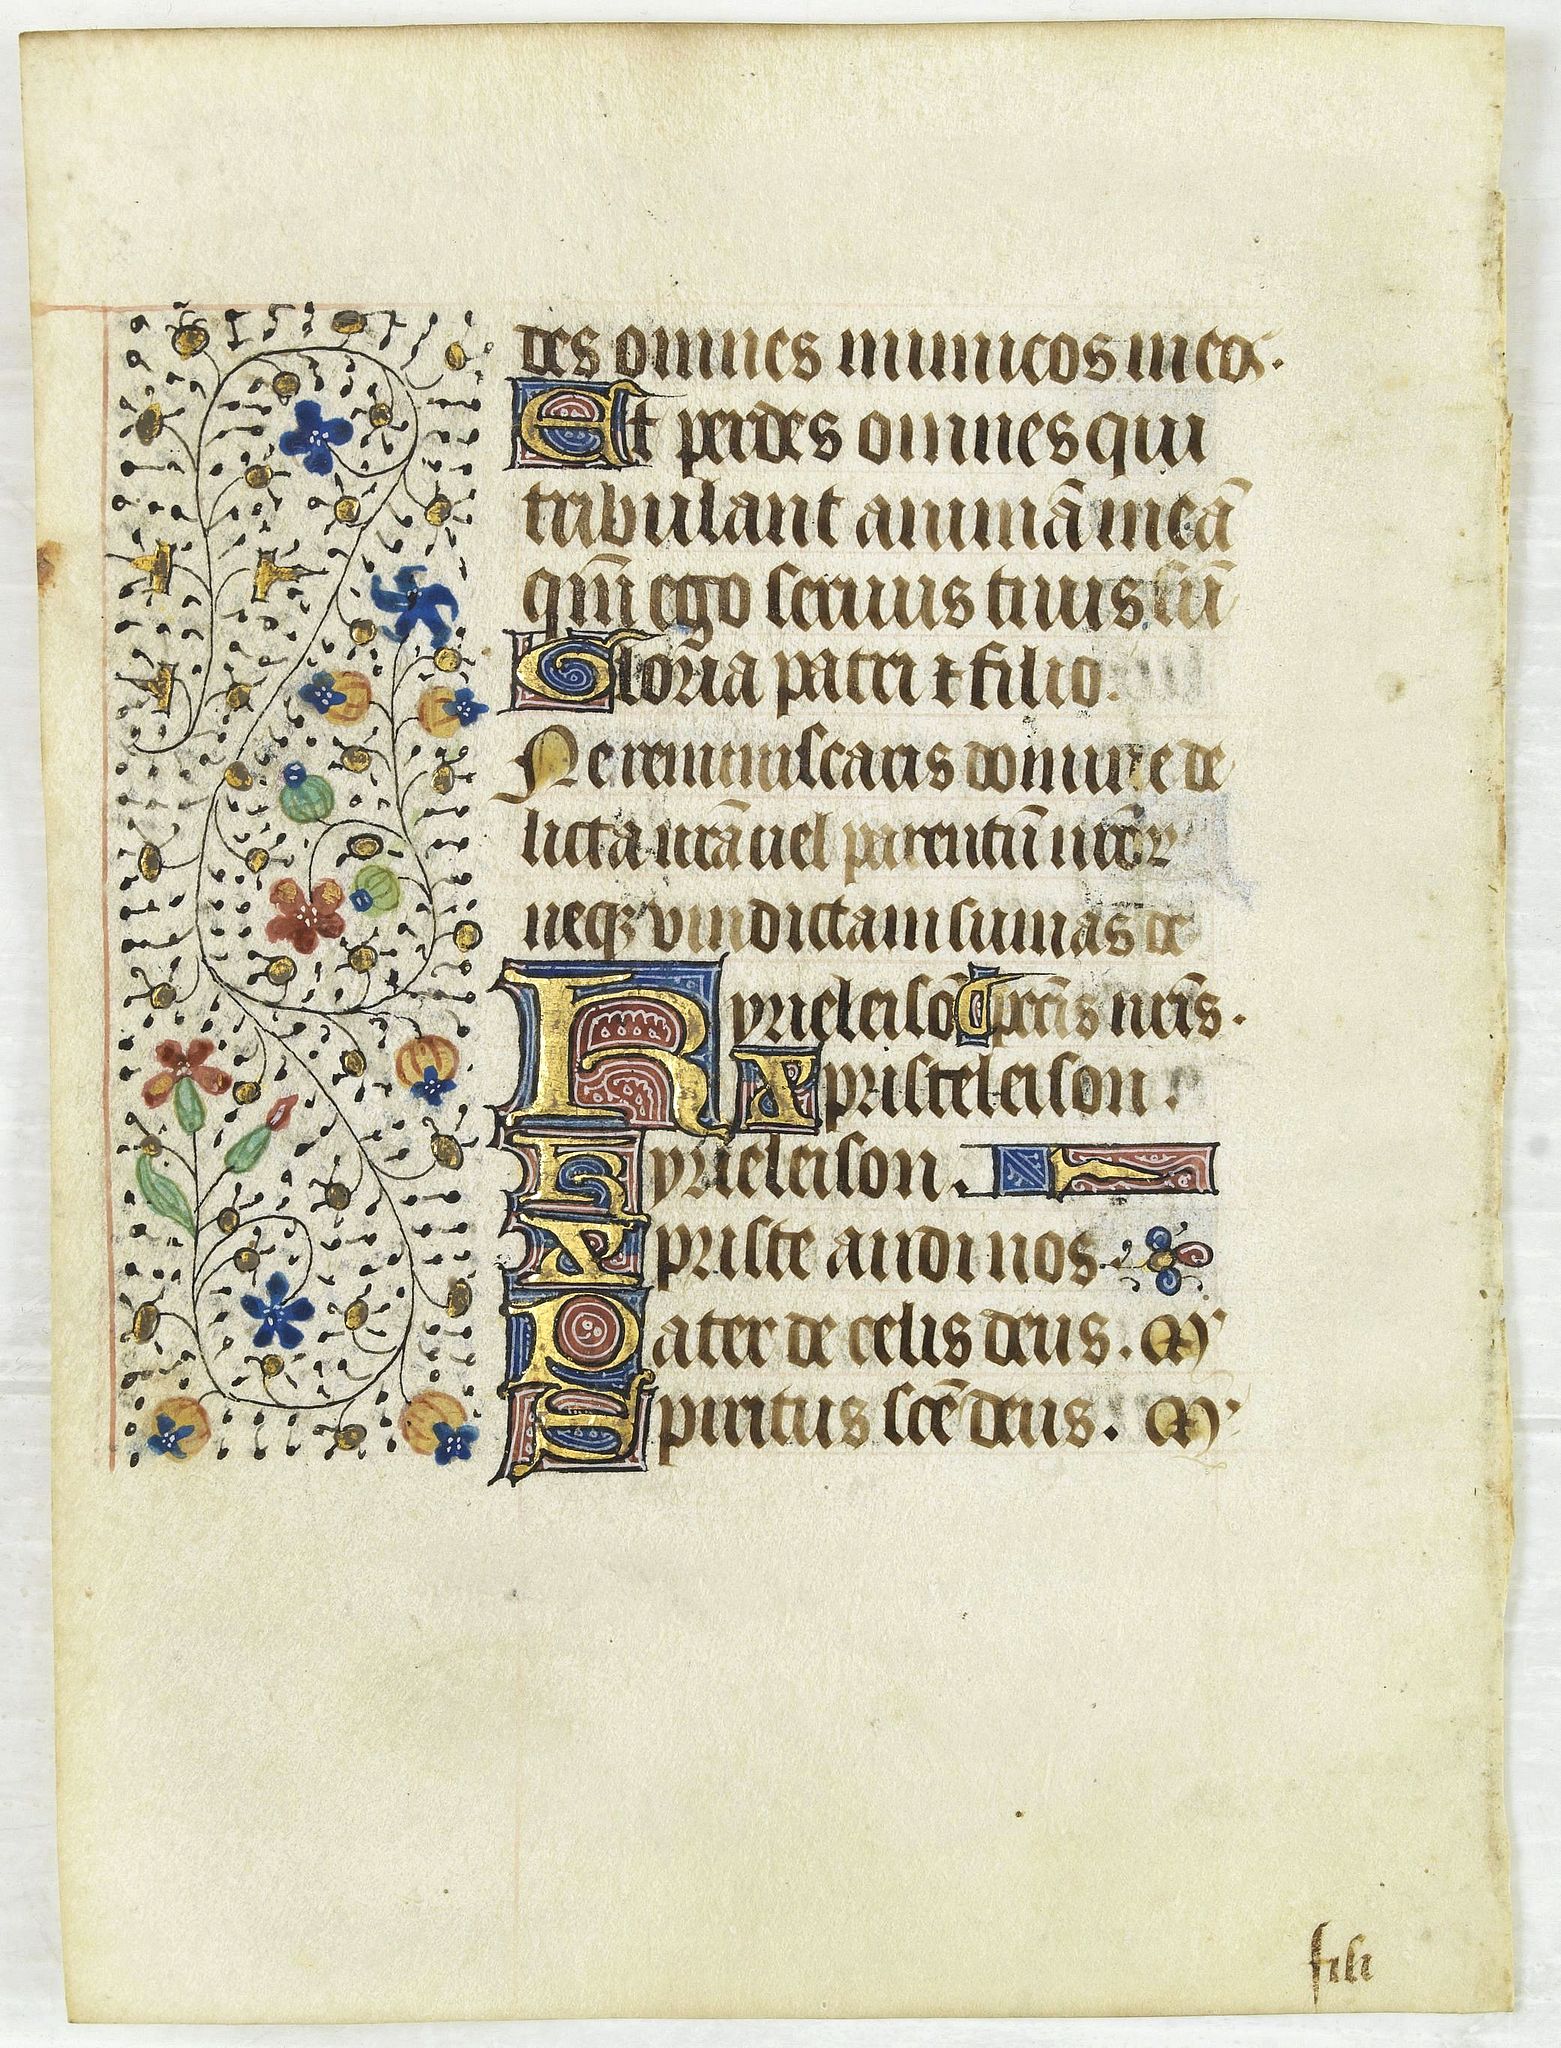 des omnes inimicos meos.
Et perdes omnes qui
tribulant animā meā
qm̄ ego seruus tuus sū
Gloria patri ⁊ filio.
Ne reminiscaris domine de
licta nrā uel parentū nrōꝝ
neqꝫ vindictam sumas de
Kyrieleisō ⸿ pctīs nrīs.
Xpristeleison.
Kyrieleison.
Xpriste audi nos
Pater de celis deus. M
Spiritus scē deus. M
fili